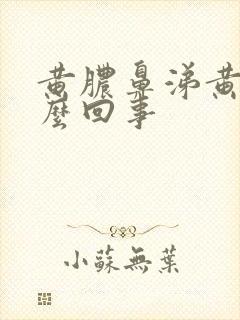 黄膿鼻涕黄
麼回事
小蘇無葉